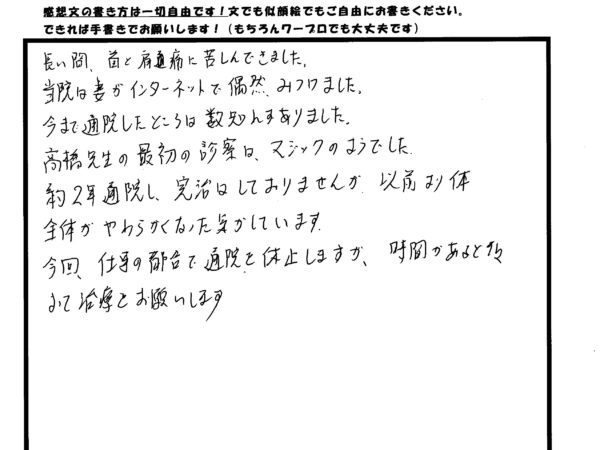 感想文の書き方は一切自由です！文でも似顔絵でもご自由にお書きください。
できれば手書きでお願いします！（もちろんワープロでも大丈夫です）
長い間、首と肩の痛に苦しんできました。
当院は妻がインターネットで偶然みつけました。
今まで通院したところは数知れずありました。
高橋先生の最初の診察は、マジックのようでした。
約2年通院し、完治はしておりませんが、以前より体
全体がやわらかくなった気がしています。
今回、仕事の都合で通院を休止しますが、時間があると
治療をお願いします